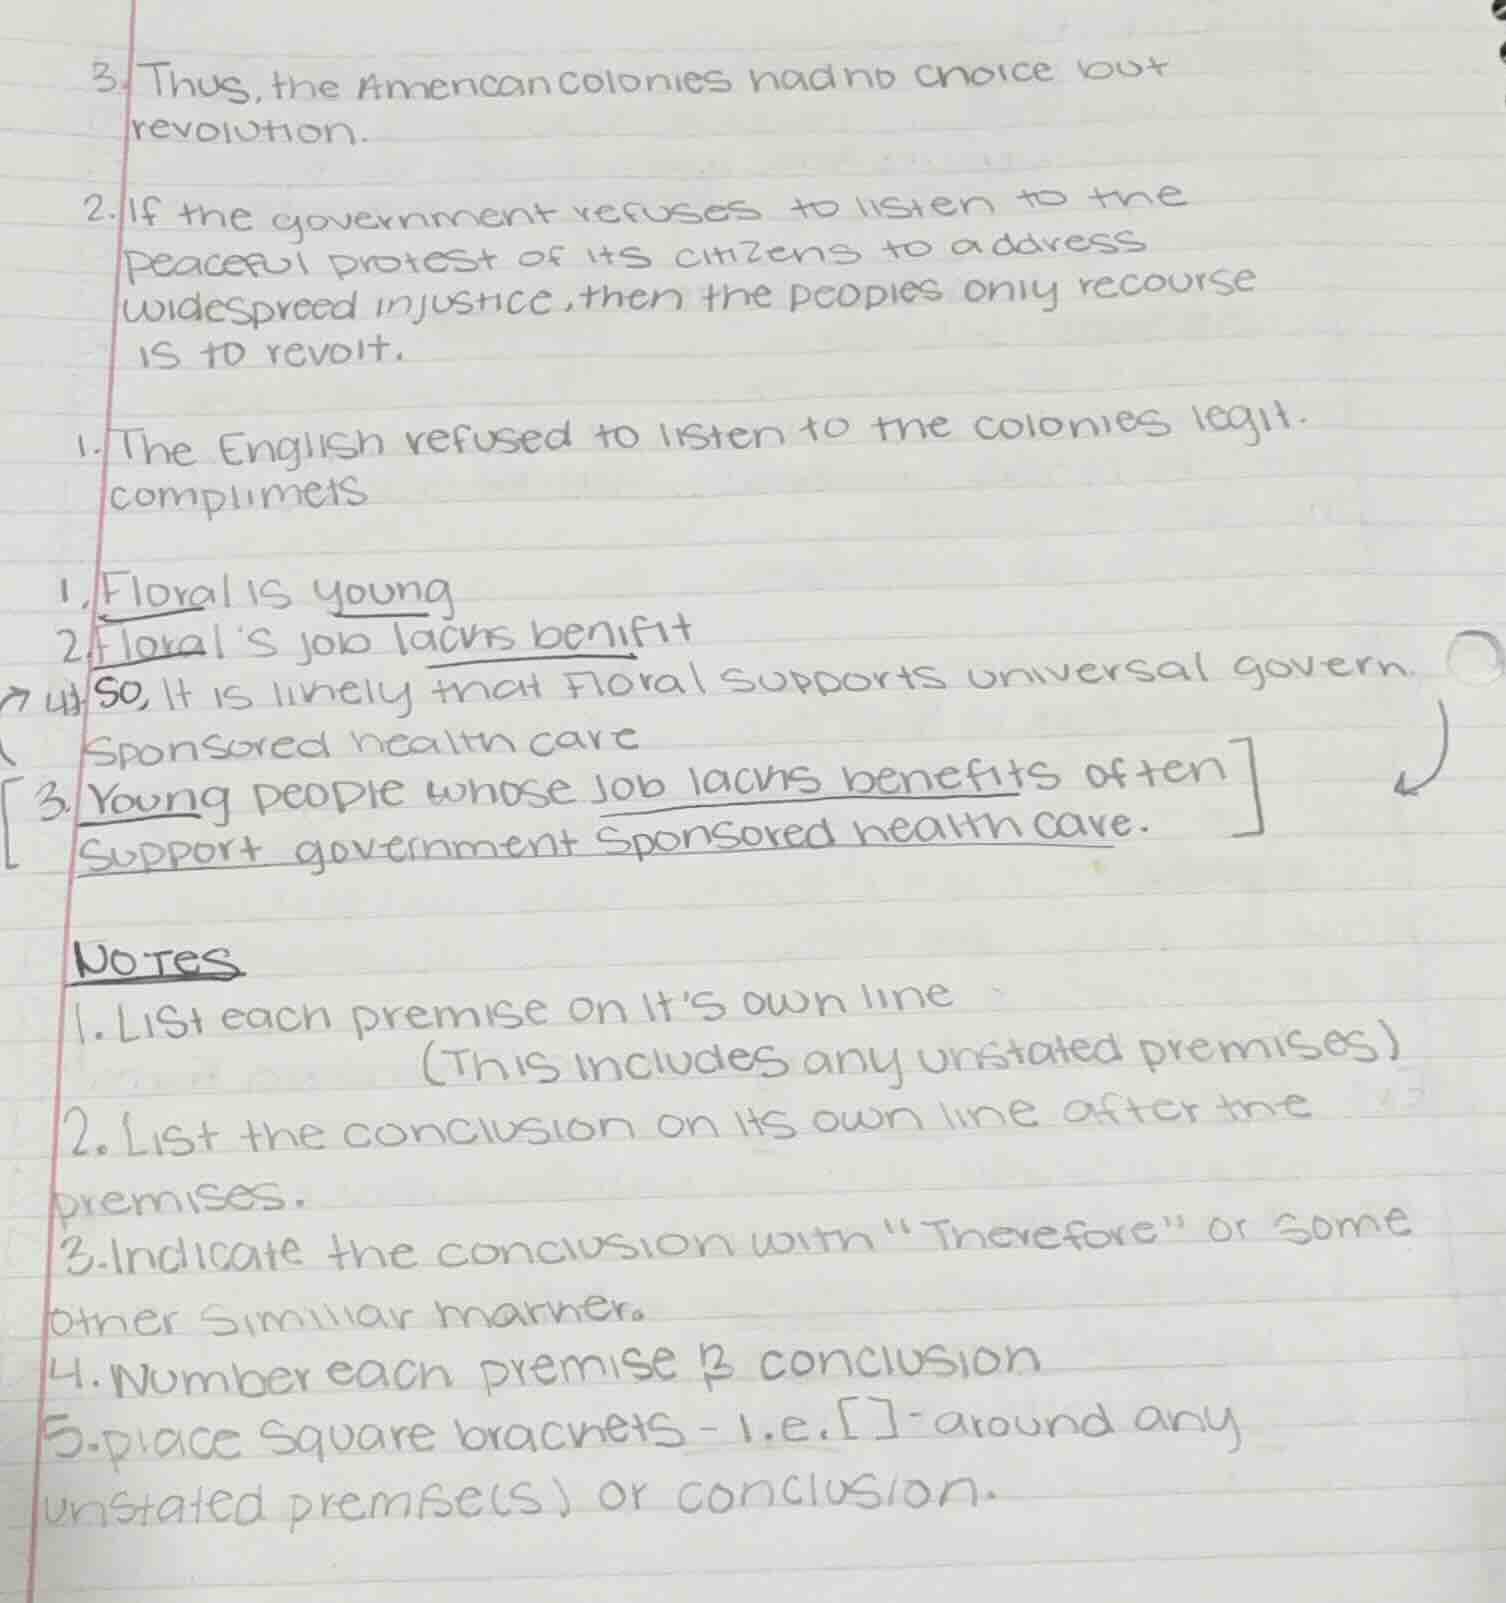 3. Thus, the American colonies had no choice but
revolution.
2. If the government refuses to listen to the
peaceful protest of its citizens to address
widespreed injustice, then the peoples only recourse
is to revolt.
1. The English refused to listen to the colonies legit.
complimets
1. Floral is young
2. Floral's job lacks benifit
4) So, It is likely that Floral supports universal govern.
sponsored health care
[3. Young people whose job lacks benefits often]
support government sponsored health care.
Notes
1. List each premise on it's own line
(This includes any unstated premises)
2. List the conclusion on its own line after the
premises.
3. Indicate the conclusion with "Therefore" or some
other similiar manner.
4. Number each premise & conclusion
5. place square brackets - i.e. [] - around any
unstated premise(s) or conclusion.